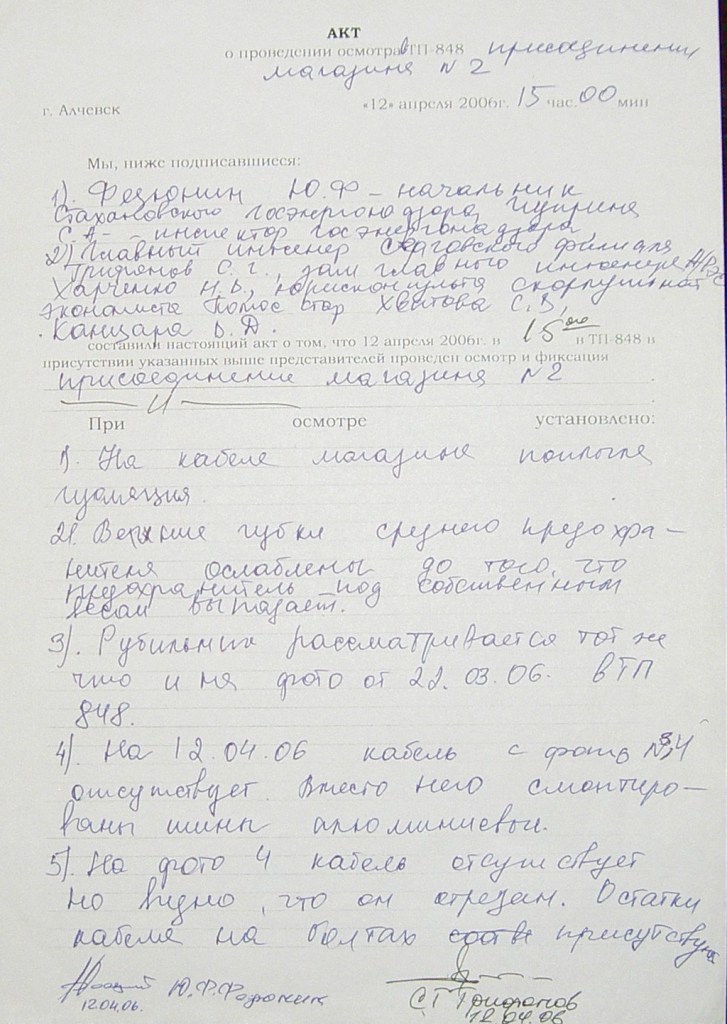 АКТ
о проведении осмотра в ТП-848 присоединении
магазина N 2
г. Алчевск «12» апреля 2006г. 15 час. 00 мин
Мы, ниже подписавшиеся:
1). Федонин Ю.Ф - начальник
Стахановского Госэнергонадзора,
С.А. - инспектор госэнергонадзора,
2) Главный инженер филиала
Трифонов С.Г., зам главного инженера
Харченко Н.В., юрисконсульта
экономиста Хвитова С.В,
Канцара В.Д.
составили настоящий акт о том, что 12 апреля 2006г. в 15 оо в ТП-848 в
присутствии указанных выше представителей проведен осмотр и фиксация
присоединение магазина N 2
— и —
При осмотре установлено:
1). На кабеле магазина поплыла
изоляция.
2). Верхние губки среднего предохра-
нителя ослаблены до того, что
предохранитель под собственным
весом выпадает.
3). Рубильник рассматривается тот же
что и на фото от 22.03.06. в ТП
848.
4). На 12.04.06 кабель с фото N 3,4
отсутствует. Вместо него смонтиро-
ваны шины алюминиевые.
5). На фото 4 кабель отсутствует
но видно, что он отрезан. Остатки
кабеля на болтах присутствуют
Ю.Ф.Федонин
12.04.06.
С.Г Трифонов
12.04.06